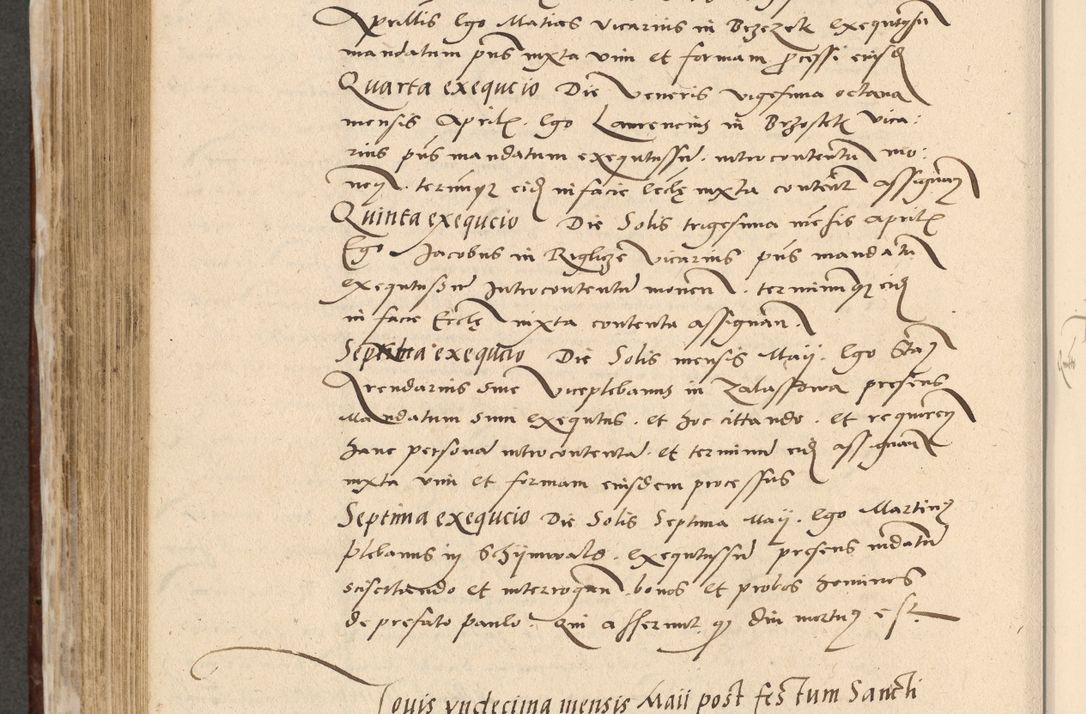 Aprillis Ego Matias vicarius in Brzezek exequtus su
mandatum pns iuxta vim et formam processi eiusd
Quarta exequcio Die Veneris vigesima octava
mensis April. Ego Laurencius in Brzostek vica:
rius pns mandatum exequtus su. introcontentu mo:
neñ. terminuqz eid in facie Eccle iuxta content assignañ
Quinta exequcio Die Solis trigesima mensis April
Ego Jacobus in Kiglicze vicarius pns mandatu
exequtus su Introcontentu moneñ. terminuqz eid
in facie Eccle iuxta contenta assignañ.
exequcio Die Solis mensis Maij. Ego Sta
Arendarius sive viceplebanus in Zalassowa presens
Mandatum sum exequtus. et hoc cittando. et requireñ
hanc persona introcontenta. et terminu eid assignañ
iuxta vim et formam eiusdem processus
Septima exequcio Die Solis Septima Maij. Ego Martinus
plebanus in Schijnwald. exequtus su presens mdatu
sciscitando et interrogañ. bonos et probos homines
de prefato Paulo. Qui asserunt qz diu mortuus est.
Iouis vndecima mensis Maii post festum Sancti